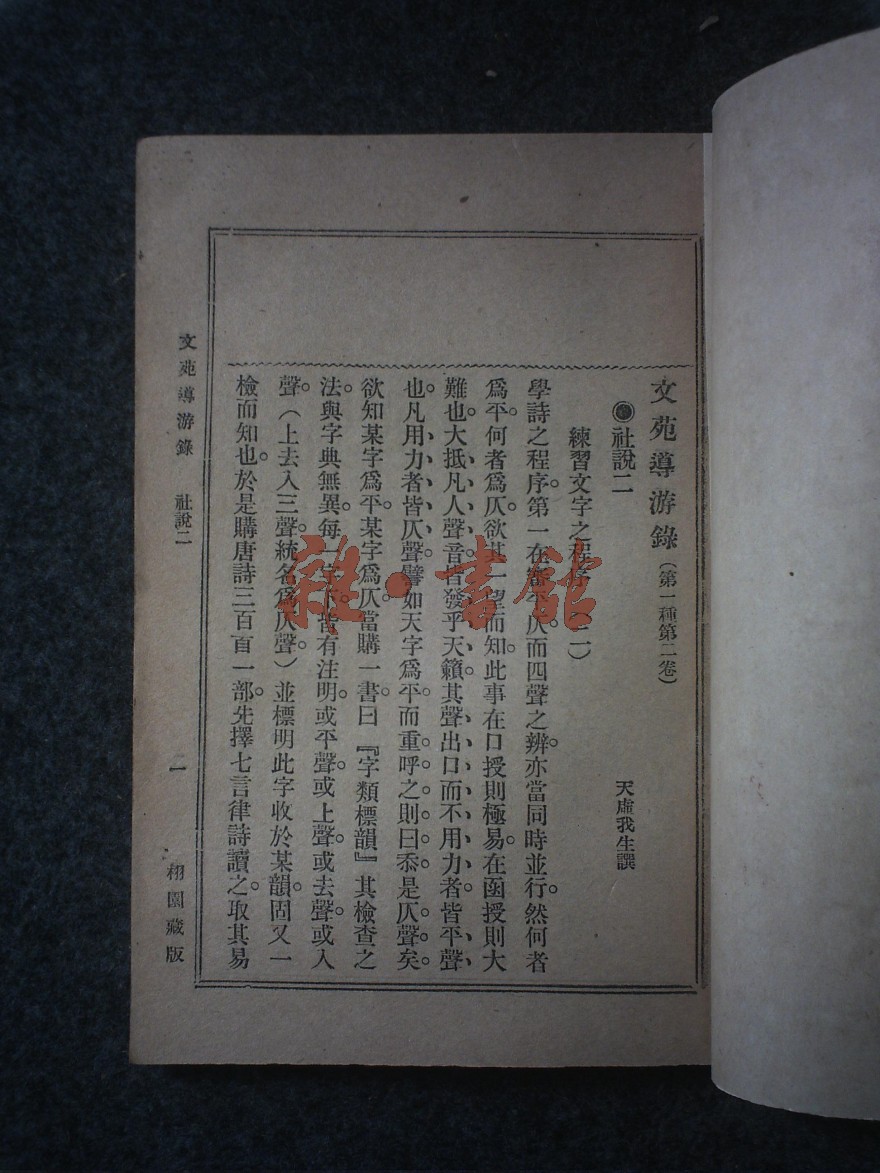 文苑導游錄(第一種第二卷)
●社說二 天虛我生譔
練習文字之程序(二)
學詩之程序。第一在審平仄。而四聲之辨。亦當同時並行。然何者
爲平。何者爲仄。欲其一望而知。此事在口授則極易。在函授則大
難也。大抵凡人聲音。皆發乎天籟。其聲出口而不用力者、皆平聲
也。凡用力者、皆仄聲。譬如天字爲平。而重呼之。則曰忝。是仄聲矣。
欲知某字爲平。某字爲仄。當購一書。曰『字類標韻』其檢查之
法。與字典無異。每一字下。皆有注明。或平聲。或上聲。或去聲。或入
聲。(上去入三聲。統名爲仄聲。)並標明此字收於某韻。固又一
檢而知也。於是購唐詩三百首一部。先擇七言律詩讀之。取其易
文苑導游錄 社說二 一 栩園藏版
雜·書館